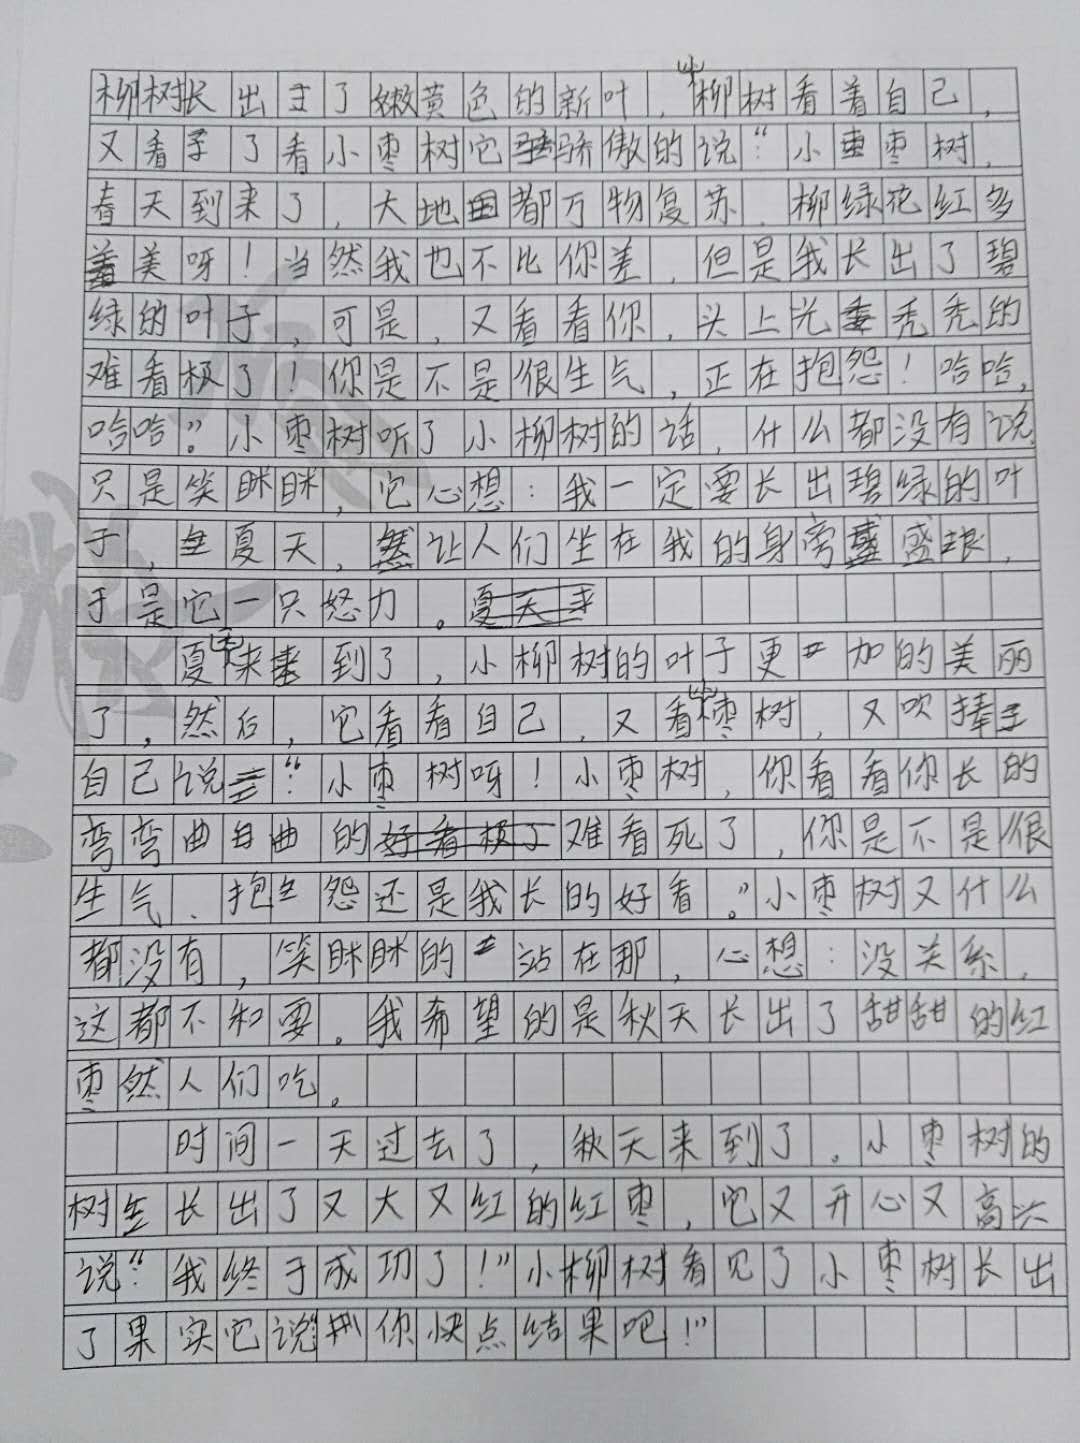 柳树长出了嫩黄色的新叶，小柳树看着自己，
又看了看小枣树它骄傲的说“小枣树，
春天到来了，大地都万物复苏，柳绿花红多
美呀！当然我也不比你差，但是我长出了碧
绿的叶子，可是，又看看你，头上光秃秃的
难看极了！你是不是很生气，正在抱怨！哈哈，
哈哈”。小枣树听了小柳树的话，什么都没有说
只是笑眯眯，它心想：我一定要长出碧绿的叶
子，夏天，让人们坐在我的身旁盛
于是它一只怒力。
夏天来到了，小柳树的叶子更加的美丽
了，然后，它看看自己，又看小枣树，又吹捧
自己说“小枣树呀！小枣树，你看看你长的
弯弯曲曲的难看死了，你是不是很
生气、抱怨还是我长的好看。”小枣树又什么
都没有，笑眯眯的站在那，心想：没关系，
这都不和要。我希望的是秋天长出了甜甜的红
枣然人们吃。
时间一天过去了，秋天来到了。小枣树的
树长出了又大又红的红枣，它又开心又高兴
说“我终于成功了！”小柳树看见了小枣树长出
了果实它说“你快点结果吧！”